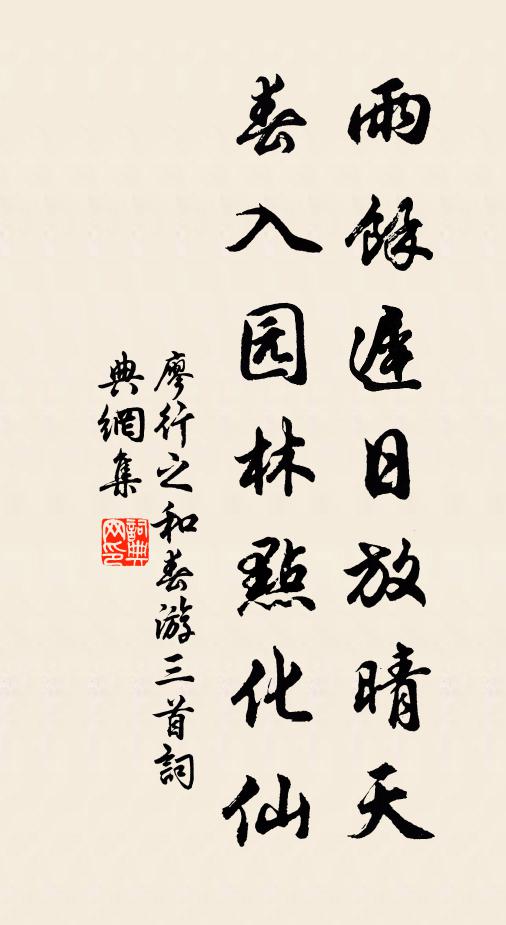 雨餘遲日放晴天
春入园林點化仙
廖行之和春游三首詞
典網集
詞典网印